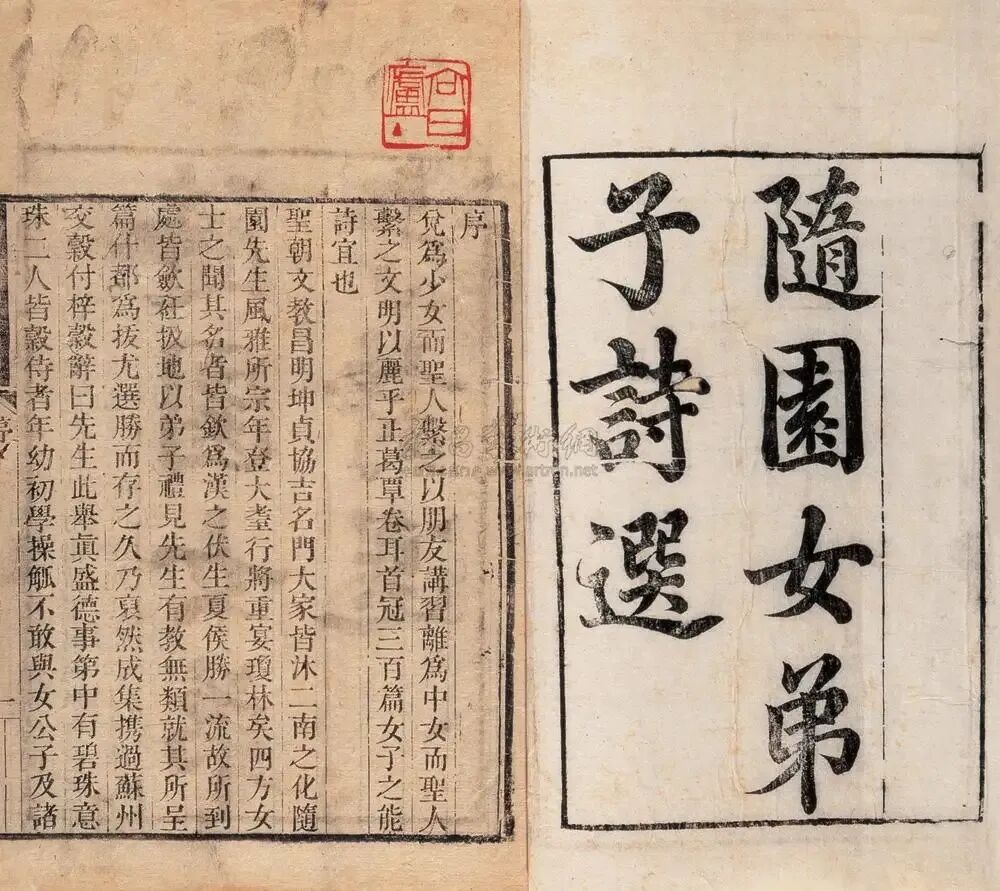 隨園女弟
子詩選
序
兌爲少女而聖人繫之以朋友講習離爲中女而聖人
繫之文明以麗乎正葛覃卷耳首冠三百篇女子之能
詩宜也
聖朝文教昌明坤貞協吉名門大家皆沐二南之化隨
園先生風雅所宗年登大耋行將重宴瓊林矣四方女
士之聞其名者皆欽爲漢之伏生夏侯勝一流故所到
處皆歛衽扱地以弟子禮見先生有教無類就其所呈
篇什都爲拔尤選勝而存之久乃裒然成集携過蘇州
交穀付梓穀辭曰先生此舉眞盛德事第中有碧珠意
珠二人皆穀侍者年幼初學操觚不敢與女公子及諸
序
一